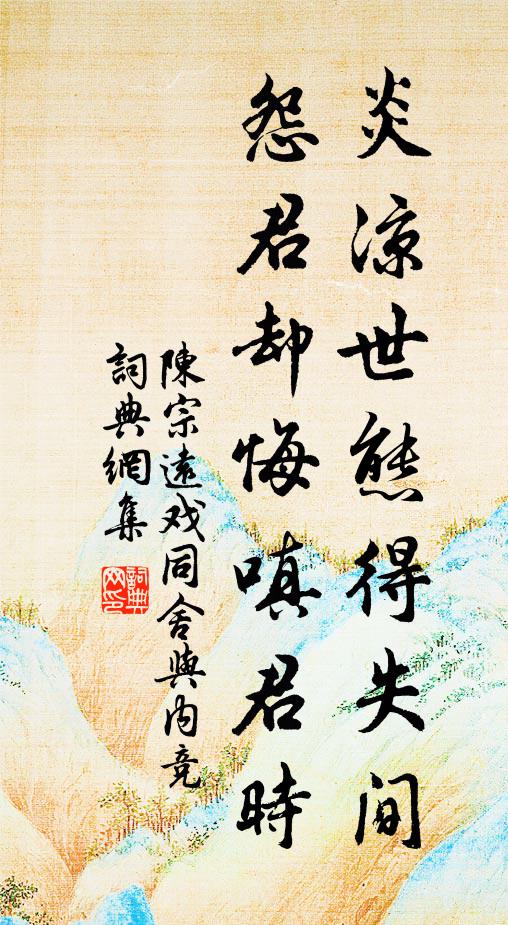 炎涼世態得失間
怨君却悔嗔君時
陳宗遠戏同舍與内竞
詞典網集
詞典网印